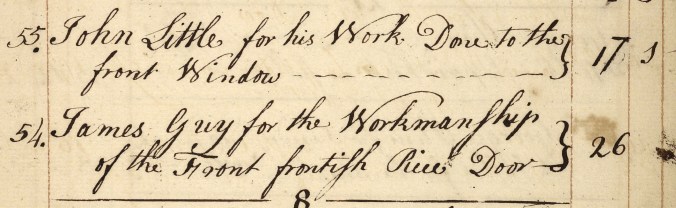 55. John Little for his Work Done to the } 17 s
front Window
54. James Guy for the Workmanship } 26
of the Front frontish Piece Door
8